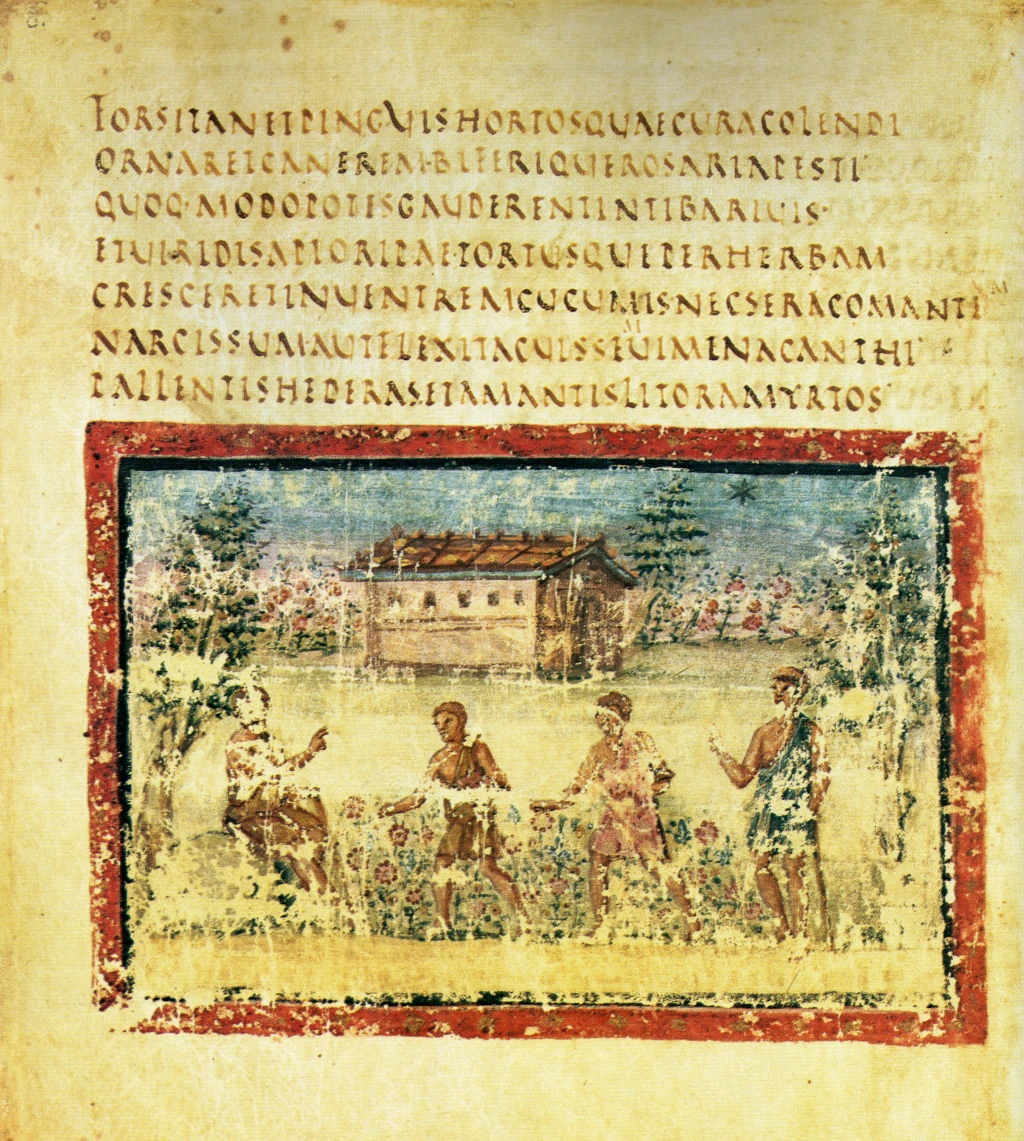 FORSITANETPINGUISHORTOSQUAECURACOLENDI
ORNARETCANEREM·BIFERIQUEROSARIAPESTI
QUOQ·MODOPOTISGAUDERENTINTIBARIUIS·
ETUIRIDISAPIORIPAETORTUSQUEPERHERBAM
CRESCERETINUENTREMCUCUMISNECSERACOMANTI
NARCISSUMAUTFLEXITACUISSEUIMENACANTHI
PALLENTISHEDERASETAMANTISLITORAMYRTOS